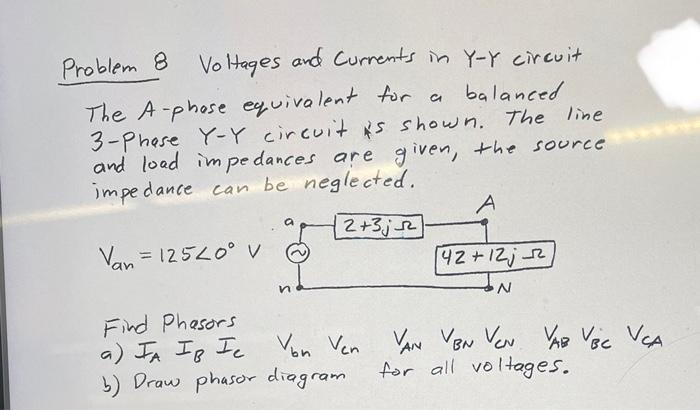 Problem 8 Voltages and Currents in Y-Y circuit
The A-phase equivalent for a balanced
3-Phase Y-Y circuit is shown. The line
and load impedances are given, the source
impedance can be neglected.
A
a 2+3j Ω
Van = 125∠0° V 42+12j Ω
n N
Find Phasors
a) IA IB IC Vbn Vcn VAN VBN VCN VAB VBC VCA
b) Draw phasor diagram for all voltages.